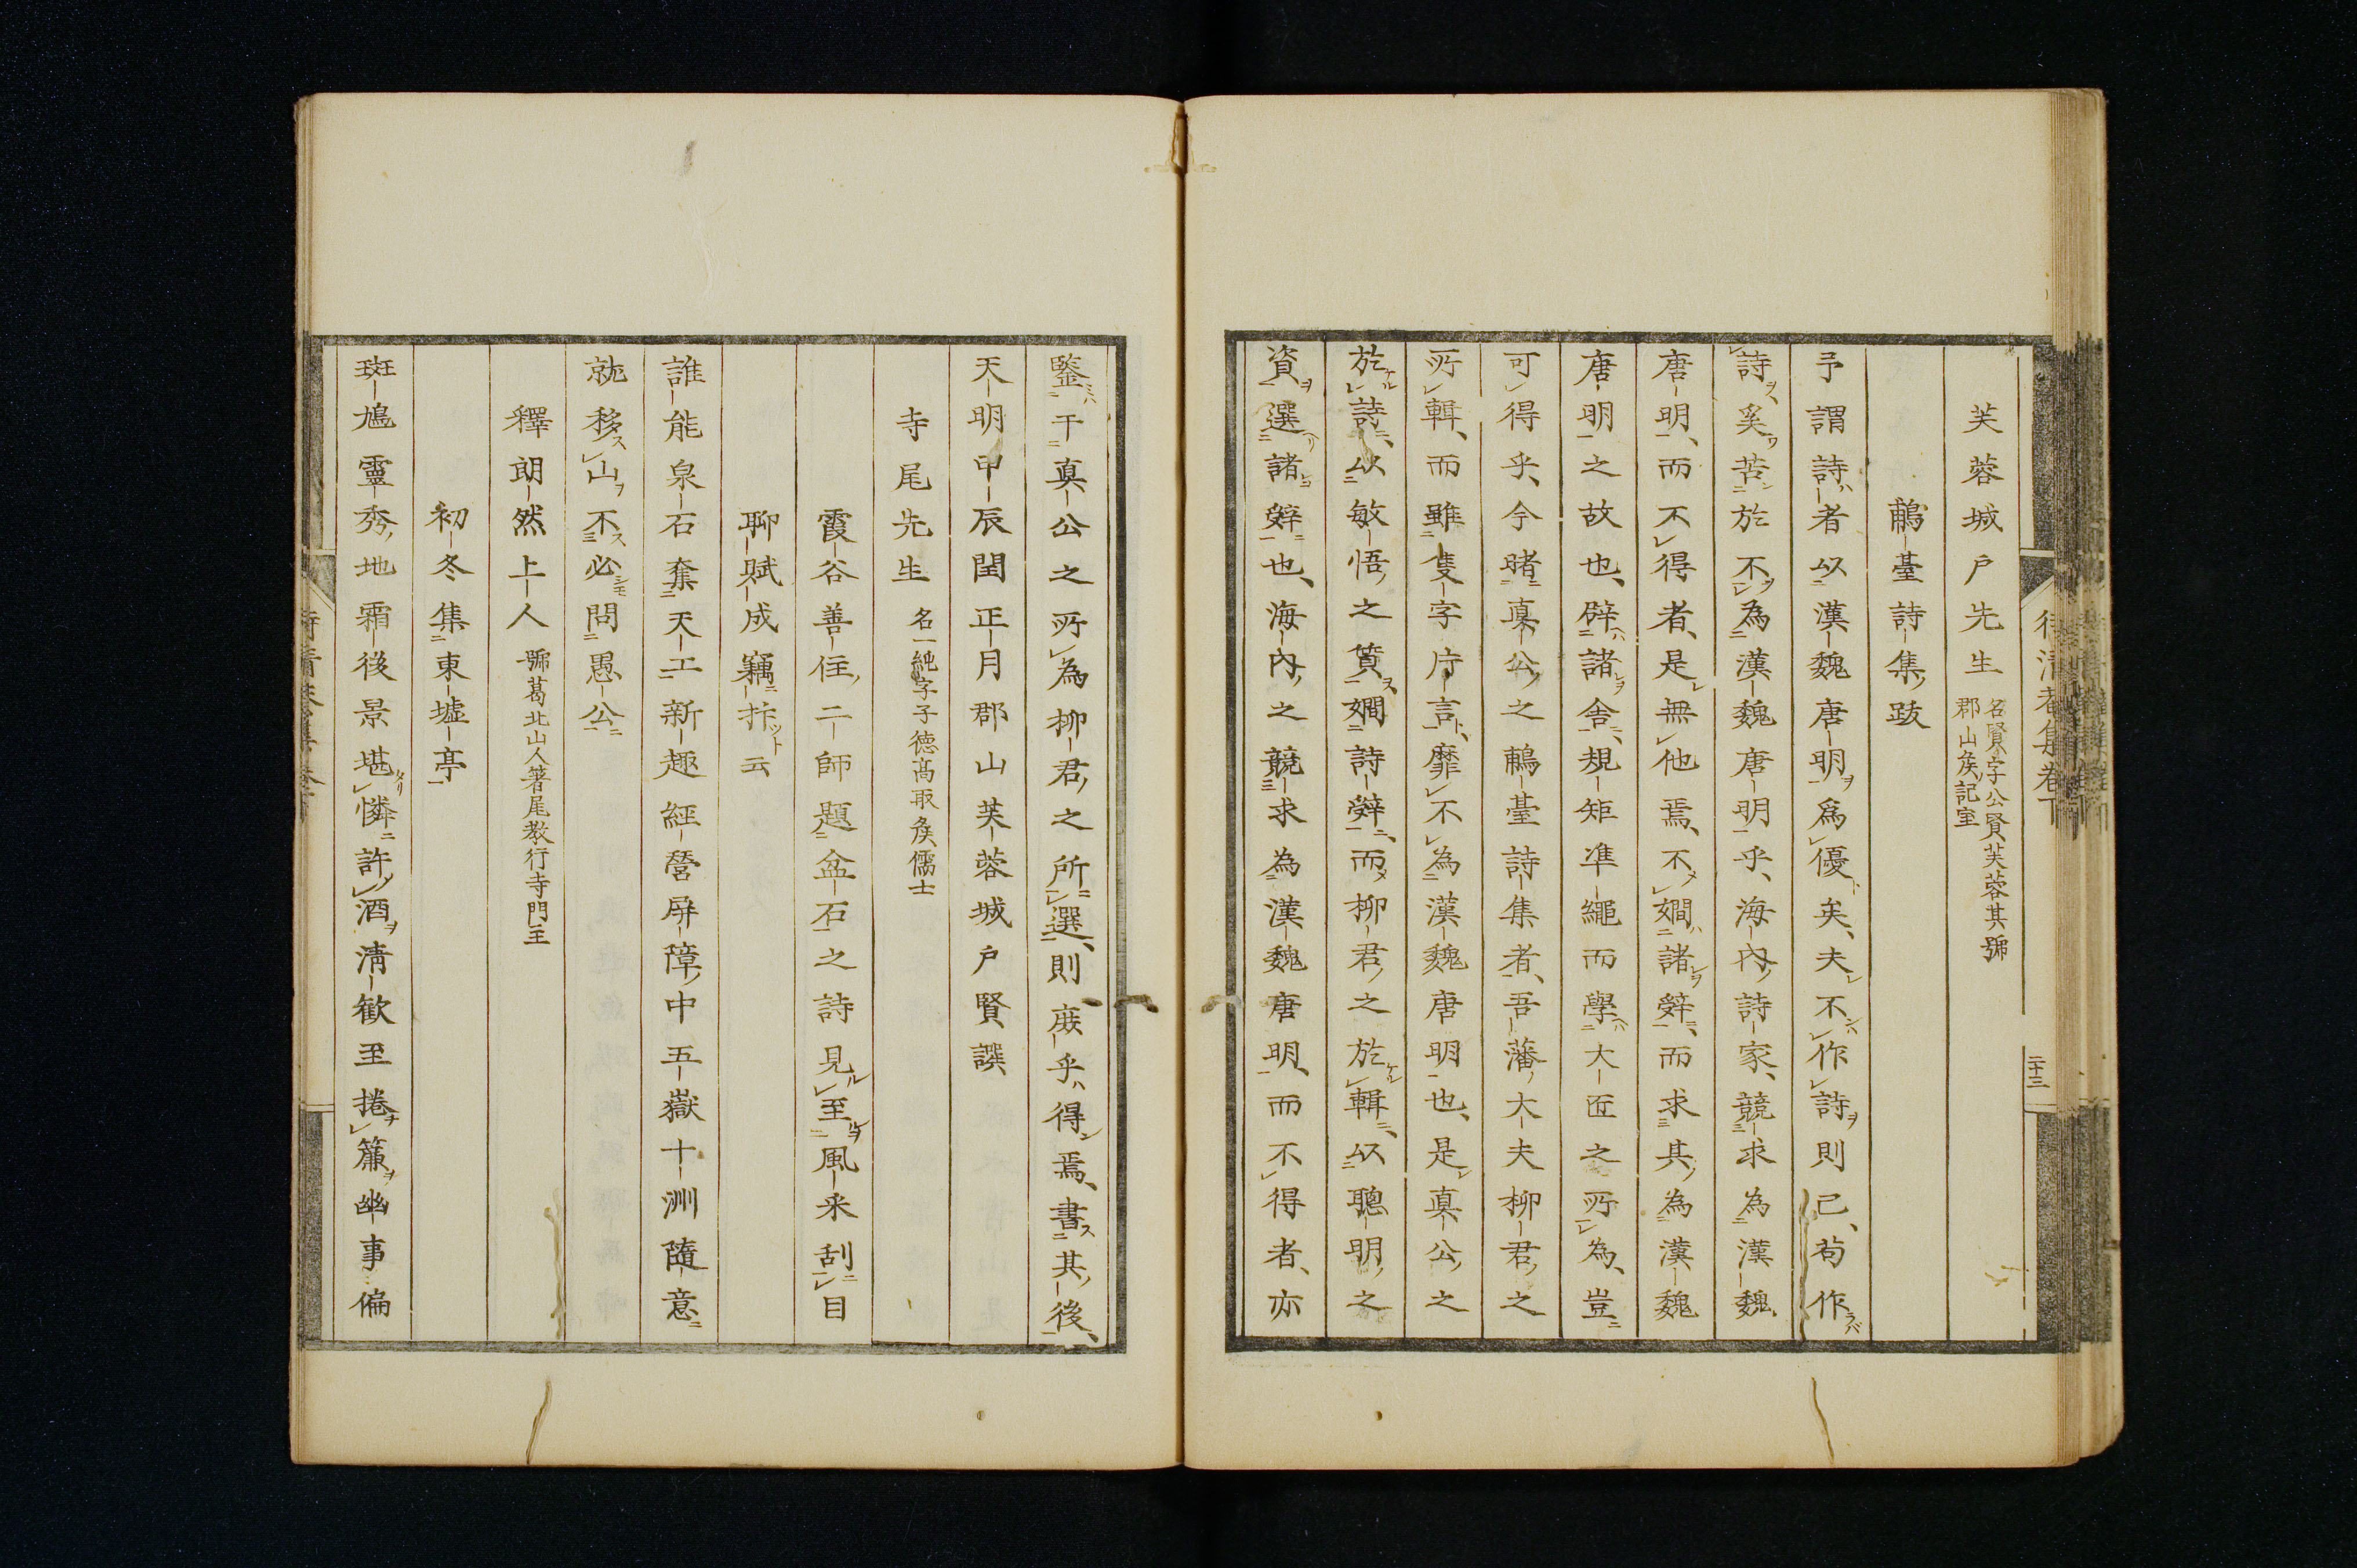 芙蓉城戸先生 名賢字公賢芙蓉其號
郡山矦記室
鶺臺詩集跋
予謂詩者以漢魏唐明爲優矣夫不作詩則已茍作
詩奚苦於不為漢魏唐明乎海內詩家競求為漢魏
唐明而不得者是無他焉不嫺諸辤而求其為漢魏
唐明之故也辟諸舍規矩準繩而學大匠之所為豈
可得乎今睹真公之鶺臺詩集者吾藩大夫柳君之
所輯而雖隻字片言靡不為漢魏唐明也是真公之
於詩以敏悟之質嫺詩辤而柳君之於輯以聰明之
資選諸辤也海內之競求為漢魏唐明而不得者亦
鑒于真公之所為柳君之所選則庶乎得焉書其後
天明甲辰閏正月郡山芙蓉城戸賢譔
寺尾先生 名一純字子徳高取矦儒士
霞谷善住二師題盆石之詩見至風采刮目
聊賦成竊抃云
誰能泉石奪天工新趣經營屏障中五嶽十洲隨意
就移山不必問愚公
釋朗然上人 號葛北山人著尾教行寺門主
初冬集東墟亭
斑鳩靈秀地霜後景堪憐許酒淸歡至捲簾幽事偏